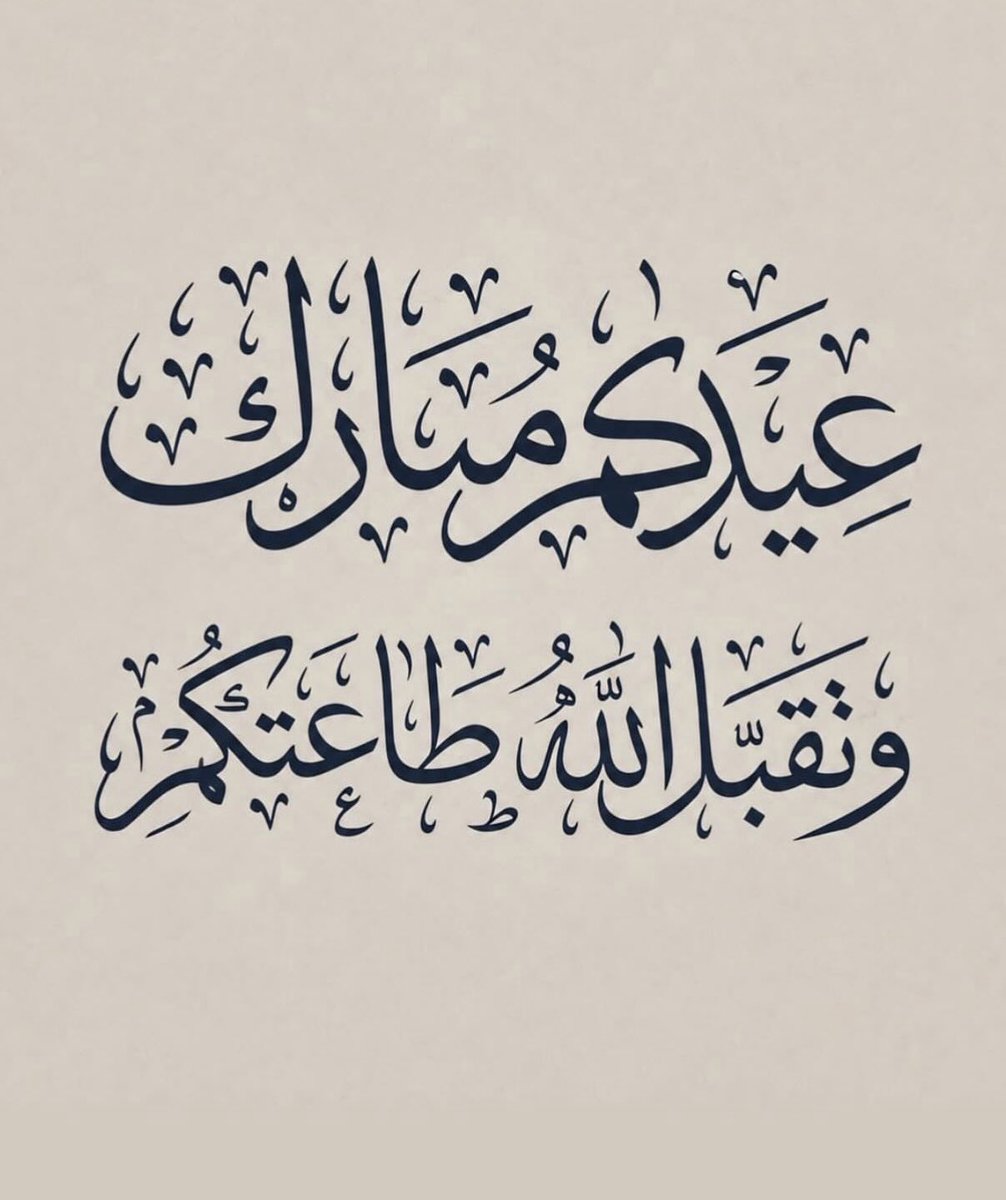 عيدكم مبارك
وتقبل الله طاعتكم